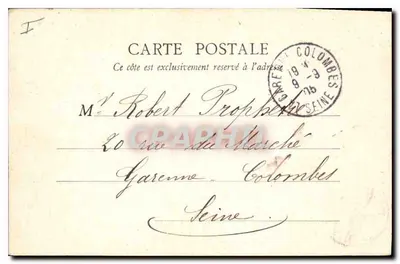 I
CARTE POSTALE
Ce côté est exclusivement réservé à l'adresse
GARENNE COLOMBES
19
9 -3
05
SEINE
Mr Robert
20 rue du Marché
Garenne - Colombes
Seine
CRAPHIL